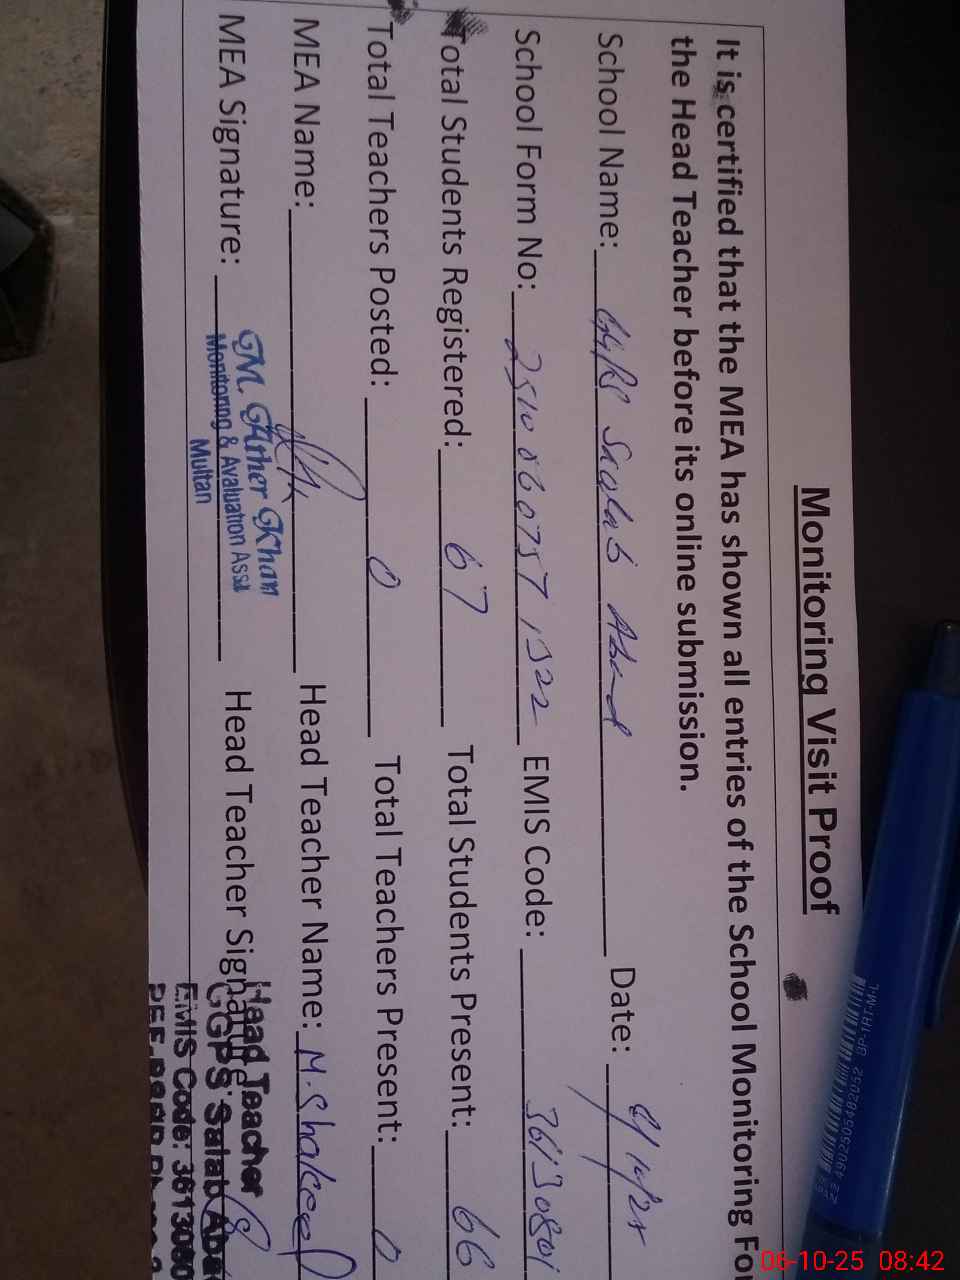 Monitoring Visit Proof
It is certified that the MEA has shown all entries of the School Monitoring For
the Head Teacher before its online submission.
School Name: GGPS Salab Abad Date:
School Form No: EMIS Code: 36130801
Total Students Registered: 67 Total Students Present: 66
Total Teachers Posted: 0 Total Teachers Present: 0
MEA Name: Head Teacher Name: M. Shakeel
MEA Signature: Head Teacher Signature:
M. Ather Khan
Monitoring & Evaluation Assi
Multan
Head Teacher
GGPS Salab Abad
EMIS Code: 3613080
06-10-25 08:42